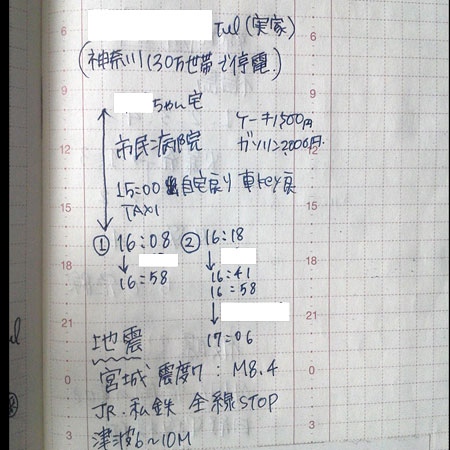 Tel(実家)
(神奈川130万世帯で停電)
ちゃん宅
市民病院
ケーキ1500円
ガソリン2000円
15:00 自宅戻り 車key戻
TAXI
① 16:08
16:58
② 16:18
16:41
16:58
17:06
地震
宮城 震度7:M8.4
JR.私鉄 全線STOP
津波6~10M
6
9
12
15
18
21
0
3
6
9
12
15
18
21
0
3